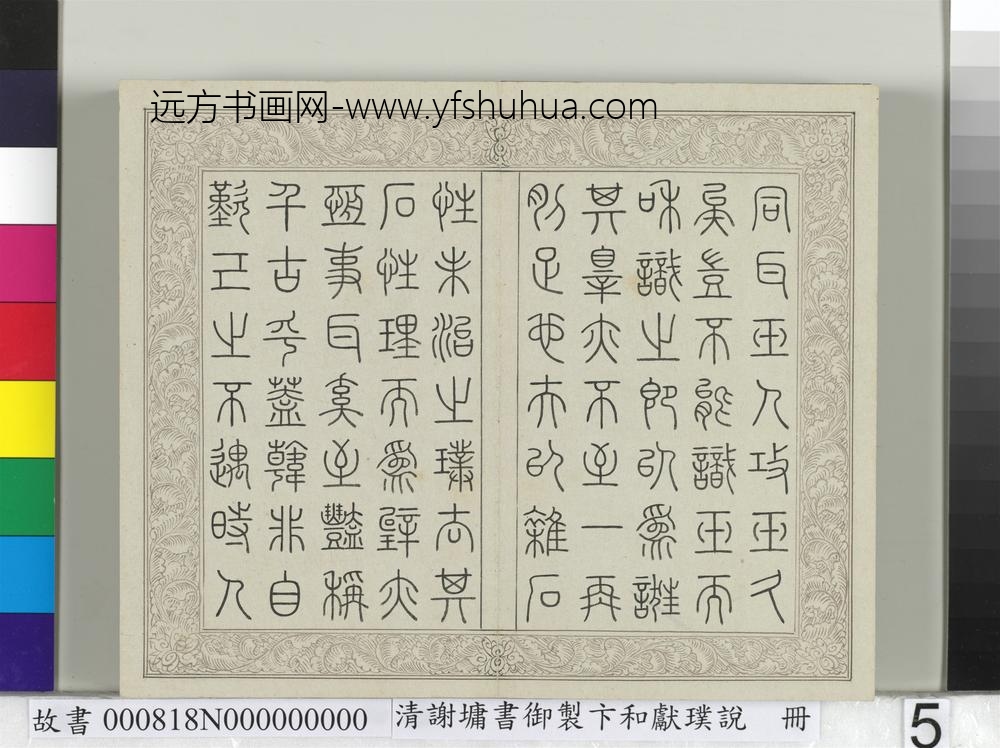 远方书画网-www.yfshuhua.com
同耳玉人攻玉久
矣豈不能識玉而
和識之即以為誑
其辠亦不至一再
刖足也夫以雜石
性未治之璞去其
石性理而為璧亦
事耳奚至豔稱
千古乎蓋韓非自
歎己之不遇時人
故書 000818N000000000 清謝墉書御製卞和獻璞說 冊
5